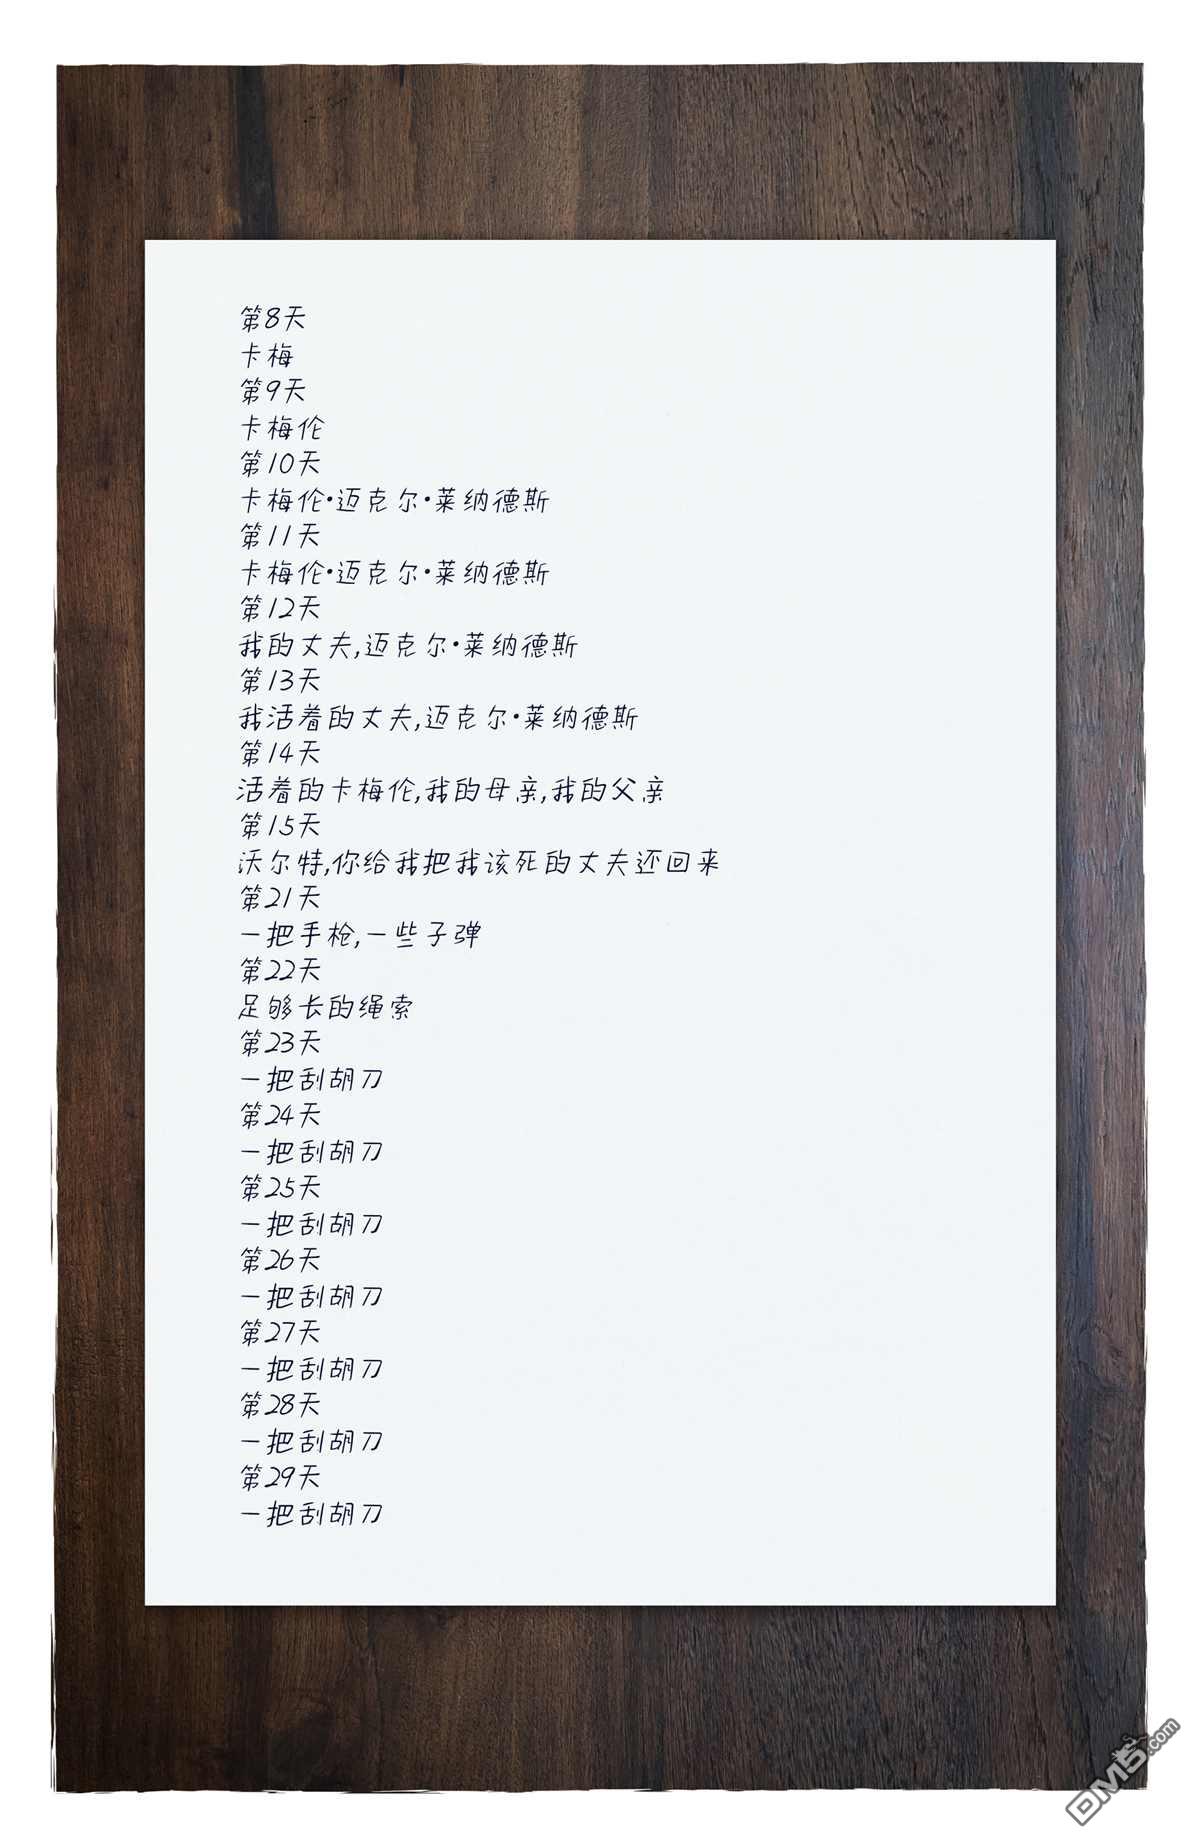 第8天
卡梅
第9天
卡梅伦
第10天
卡梅伦·迈克尔·莱纳德斯
第11天
卡梅伦·迈克尔·莱纳德斯
第12天
我的丈夫,迈克尔·莱纳德斯
第13天
我活着的丈夫,迈克尔·莱纳德斯
第14天
活着的卡梅伦,我的母亲,我的父亲
第15天
沃尔特,你给我把我该死的丈夫还回来
第21天
一把手枪,一些子弹
第22天
足够长的绳索
第23天
一把刮胡刀
第24天
一把刮胡刀
第25天
一把刮胡刀
第26天
一把刮胡刀
第27天
一把刮胡刀
第28天
一把刮胡刀
第29天
一把刮胡刀
DM5.com